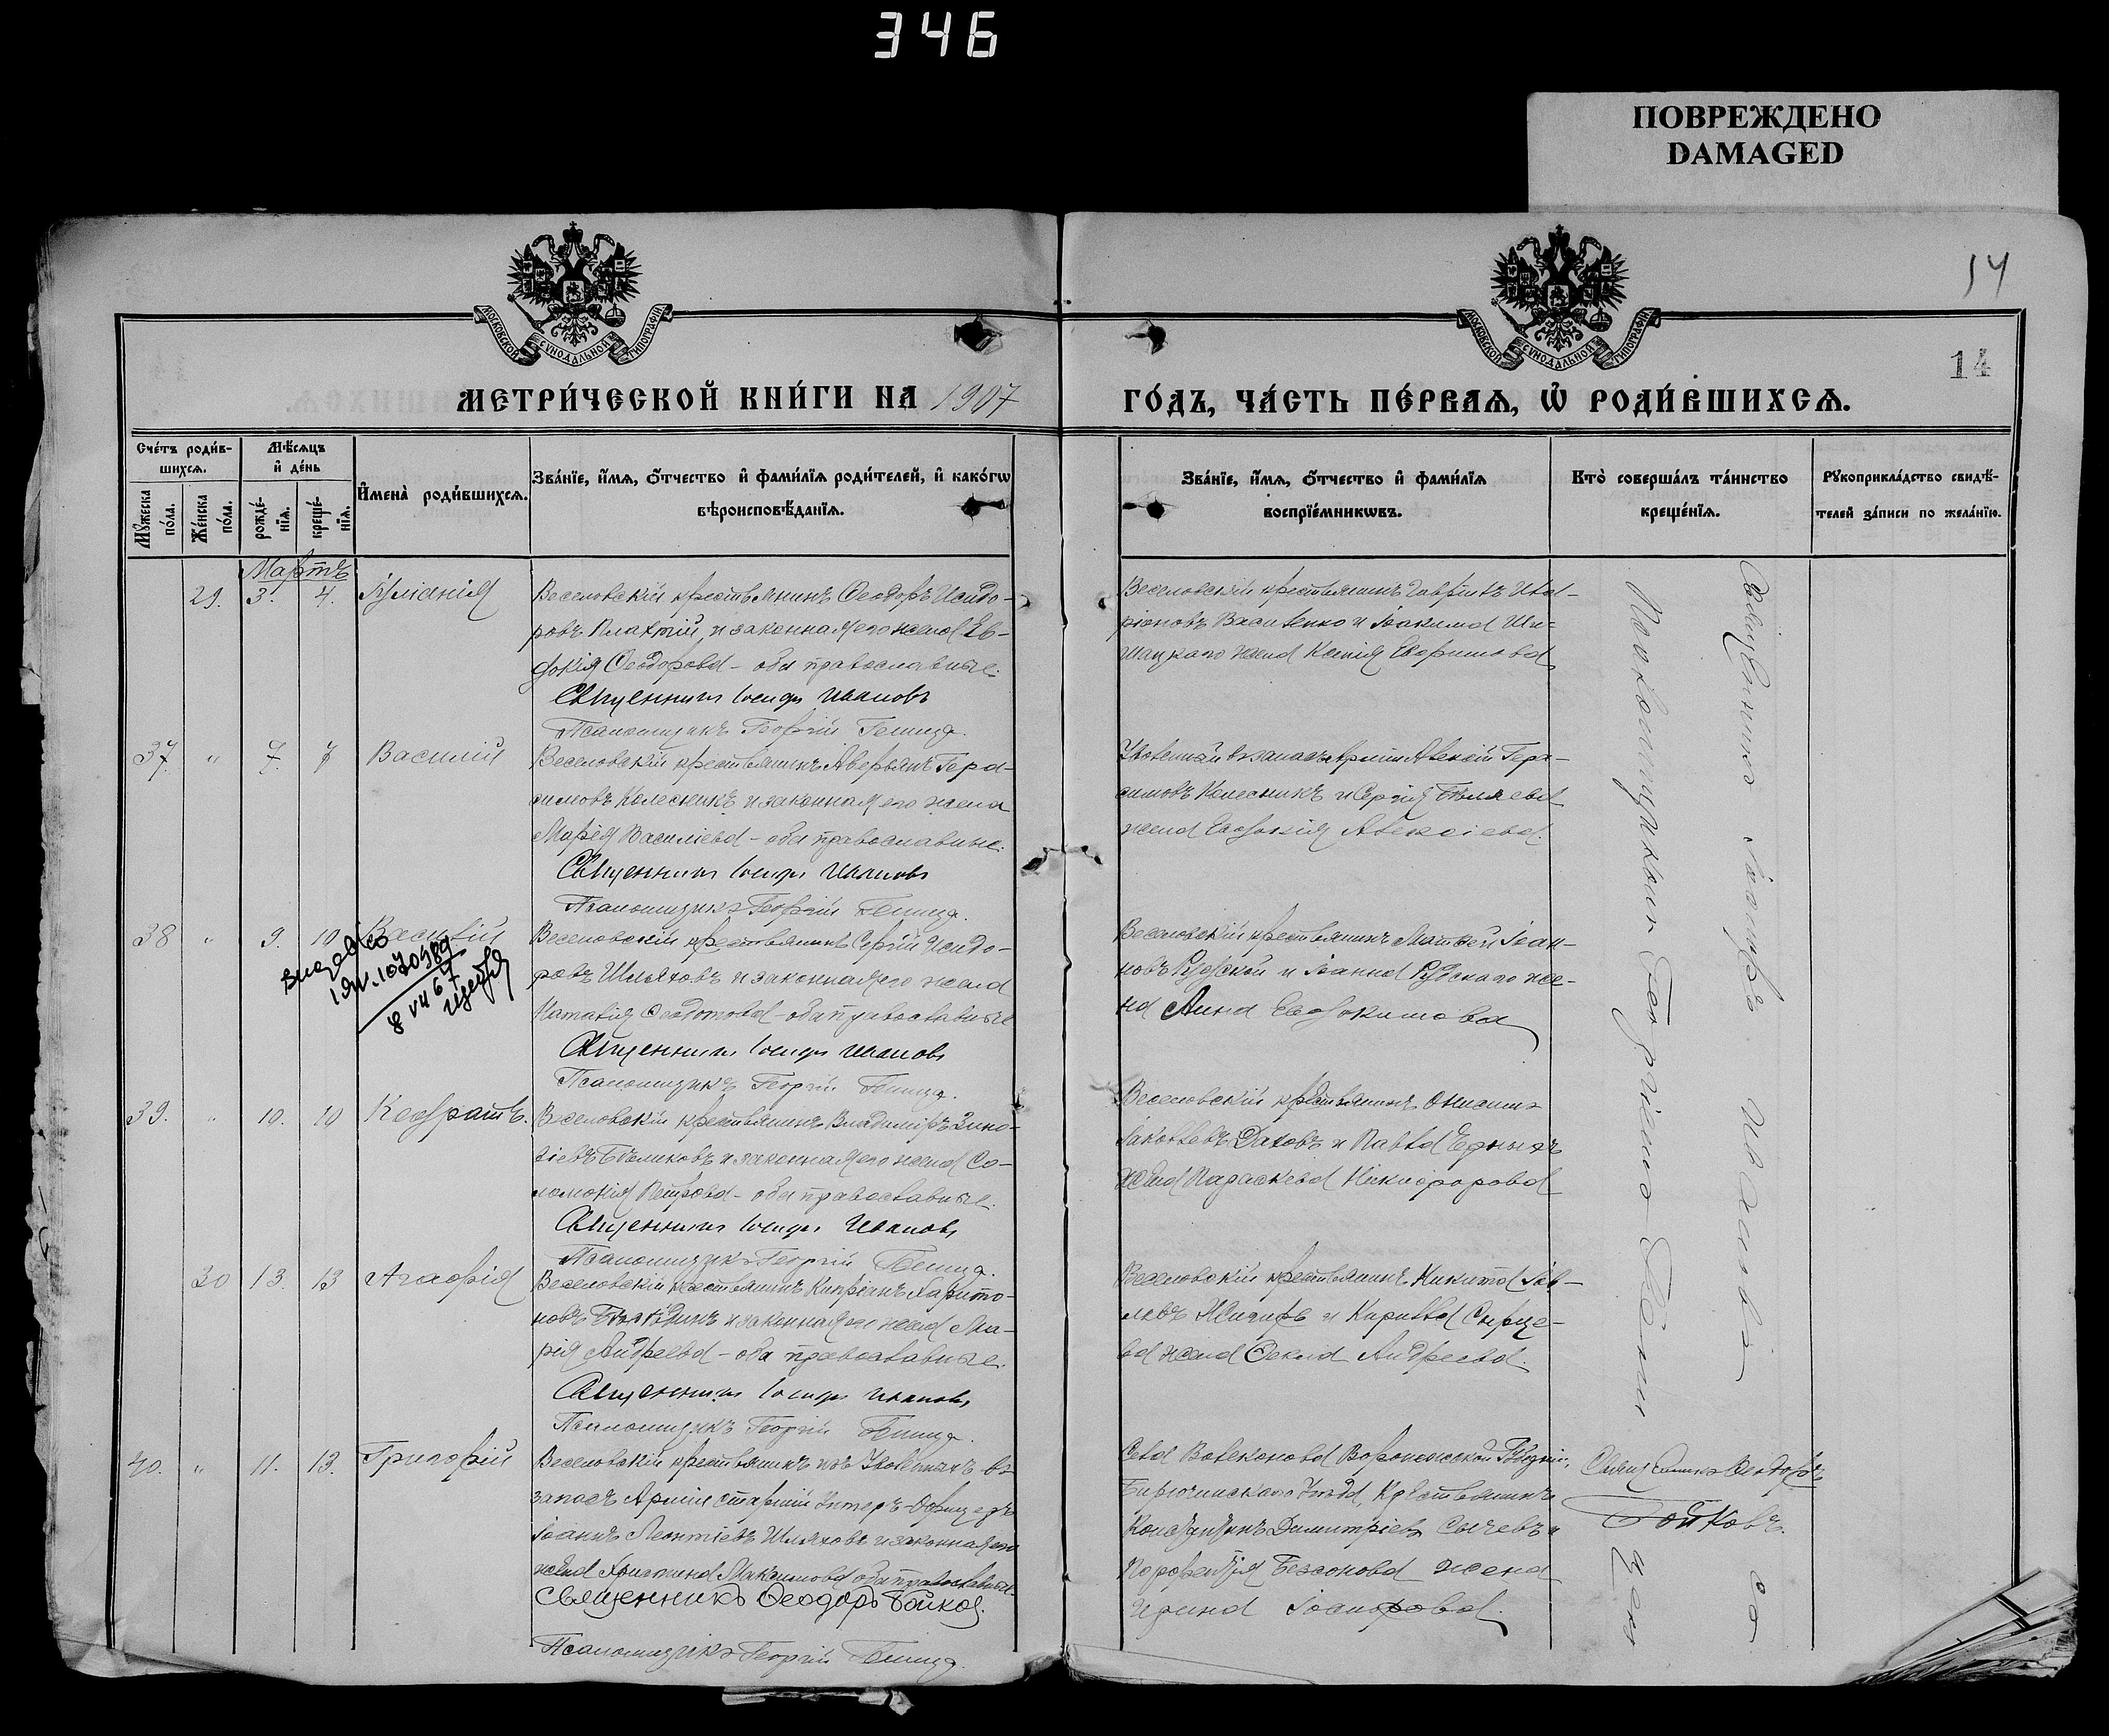 346
ПОВРЕЖДЕНО
DAMAGED
14
14
МОСКОВСКОЙ СѴНОДАЛЬНОЙ ТИПОГРАФІИ
МОСКОВСКОЙ СѴНОДАЛЬНОЙ ТИПОГРАФІИ
МЕТРИ́ЧЕСКОЙ КНИ́ГИ НА 1907
ГО́ДЪ, ЧА́СТЬ ПЕ́РВАѦ, Ѡ҆ РОДИ́ВШИХСѦ.
Сче́тъ роди́в-
шихсѧ.
Мꙋжеска по́ла.
Же́нска по́ла.
Мѣ́сѧцъ
и҆ де́нь
рожде́-
нїѧ.
креще́-
нїѧ.
И҆мена̀ роди́вшихсѧ.
Зва́нїе, и҆́мѧ, ѻ҆́тчество и҆ фами́лїѧ роди́телей, и҆ како́гѡ
вѣроисповѣ́данїѧ.
Зва́нїе, и҆́мѧ, ѻ҆́тчество и҆ фами́лїѧ
воспрїе́мникѡвъ.
Кто̀ соверша́лъ та́инство
креще́нїѧ.
Рꙋкоприкла́дство свидѣ́-
телей за́писи по жела́нїю.
Мартъ
29. 3. 4. Іуліанія
Веселовскій крестьянинъ Ѳеодоръ Исидо-
ровъ Плахтій, и законная его жена Ев-
докія Ѳеодорова - оба православные.
Священникъ Іосифъ Ивановъ
Псаломщикъ Георгій
Веселовскій крестьянинъ Гавріилъ Ила-
ріоновъ Василенко и Іоакима Ши-
шацкаго жена Ксенія Ефимова
37. " 7. 7 Василій
Веселовскій крестьянинъ Аверьянъ Гера-
симовъ Колесникъ и законная его жена
Марія Василіева - оба православные.
Священникъ Іосифъ Ивановъ
Псаломщикъ Георгій
Уволенный въ запасъ Арміи Алексій Гера-
симовъ Колесникъ и Сергія Бѣляева
жена Евдокія Алексіева.
38 " 9. 10 Василій
Веселовскій крестьянинъ Сергій Исидо-
ровъ Шляховъ и законная его жена
Наталія Ѳеодотова - оба православные
Священникъ Іосифъ Ивановъ
Псаломщикъ Георгій
Веселовскій крестьянинъ Матвей Іоан-
новъ и Іоанна же-
на Анна Евдокимова
39. " 10. 10 Кодратъ.
Веселовскій крестьянинъ Владиміръ Зино-
віевъ Бѣликовъ и законная его жена Со-
ломонія Петрова - оба православные.
Священникъ Іосифъ Ивановъ
Псаломщикъ Георгій
Веселовскій крестьянинъ Онисимъ
Іаковлевъ и Павла
жена Параскева Никифорова
30 13. 13 Агафія
Веселовскій крестьянинъ Кипріанъ Харито-
новъ и законная его жена Ма-
рія Андреева - оба православные.
Священникъ Іосифъ Ивановъ
Псаломщикъ Георгій
Веселовскій крестьянинъ Никита
и Кирилла Сырце-
ва жена Ѳекла Андреева.
40. " 11. 13. Григорій
Веселовскій крестьянинъ изъ Уволенныхъ въ
запасъ Арміи старшій Унтеръ-Офицеръ
Іоаннъ Леонтіевъ Шляховъ и законная его
жена Христина Максимова оба православные.
Священникъ Ѳеодоръ Бойков.
Псаломщикъ Георгій
Села Волоконова Воронежской Губерніи,
Бирюченскаго Уѣзда, Крестьянинъ
Константинъ Димитріевъ Сычевъ и
Порфирія Безсонова жена
Ирина
Священникъ Ѳеодоръ
Бойковъ.
Священникъ Іосифъ Ивановъ со
Псаломщикомъ Георгіемъ